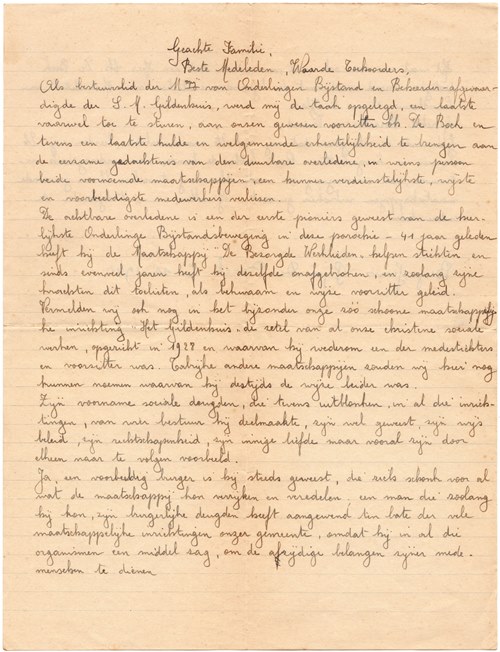 Geachte Familie,
Beste Medeleden, Waarde Toehoorders,
Als bestuurslid der M van Onderlingen Bijstand en Beheerder-afgevaar-
digde der S. M. Gildenhuis, werd mij de taak opgelegd, een laatste
vaarwel toe te sturen, aan onzen gewezen voorzitter De Bock en
tevens een laatste hulde en welgemeende erkentelijkheid te brengen aan
de eerzame gedachtenis van den duurbare overledene, in wiens persoon
beide voornoemde maatschappijen, een hunner verdienstelijkste, wijste
en voorbeeldigste medewerkers verliezen.
De achtbare overledene is een der eerste pioniers geweest van de heer-
lijkste Onderlinge Bijstandsbeweging in deze parochie - 41 jaar geleden
heeft hij de Maatschappij "De Bezorgde Werklieden helpen stichten en
sinds evenveel jaren heeft hij dezelfde onafgebroken, en zoolang zijne
krachten dit toelieten, als bekwaam en wijze voorzitter geleid.
Vermelden wij ook nog in het bijzonder onze zoo schoone maatschappelij-
ke inrichting Het Gildenhuis. de zetel van al onze christene sociale
werken, opgericht in 1928 en waarvan hij wederom een der medestichters
en voorzitter was. Talrijke andere maatschappijen zouden wij hier nog
kunnen noemen waarvan hij destijds de wijze leider was.
Zijn voorname sociale deugden, die tevens uitblonken, in al die inrich-
tingen, van wier bestuur hij deelmaakte, zijn wel geweest, zijn wijs
beleid, zijn rechtschapenheid, zijn innige liefde maar vooral zijn door
elkeen naar te volgen voorbeeld.
Ja, een voorbeeldig burger is hij steeds geweest, die zich schonk voor al
wat de maatschappij kon verrijken en veredelen. een man die zoolang
hij kon, zijn burgerlijke deugden heeft aangewend ten bate der vele
maatschappelijke inrichtingen onzer gemeente, omdat hij in al die
organismen een middel zag, om de afzijdige belangen zijner mede-
menschen te dienen